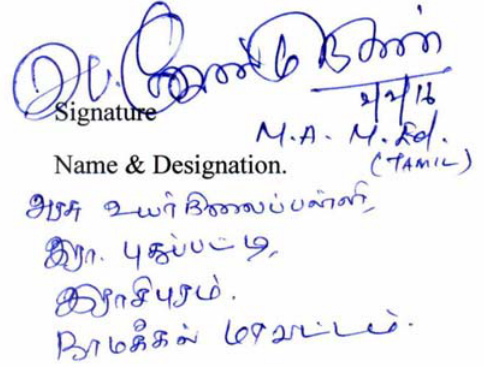 2/2/16
Signature
M.A. M.Ed.
(TAMIL)
Name & Designation.
அரசு உயர்நிலைப்பள்ளி,
இரா. புதுப்பட்டி,
இராசிபுரம்.
நாமக்கல் மாவட்டம்.